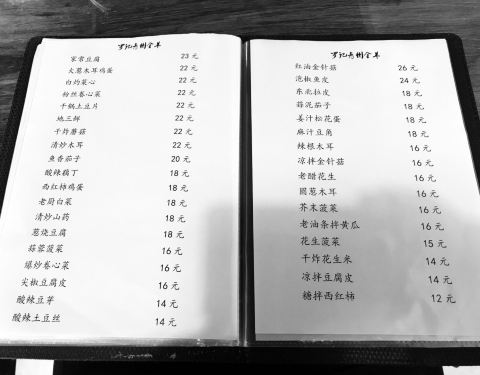 罗记南州全羊
家常豆腐 23 元
大葱木耳鸡蛋 22 元
白灼菜心 22 元
粉丝卷心菜 22 元
干锅土豆片 22 元
地三鲜 22 元
干炸蘑菇 22 元
清炒木耳 22 元
鱼香茄子 20 元
酸辣藕丁 18 元
西红柿鸡蛋 18 元
老厨白菜 18 元
清炒山药 18 元
葱烧豆腐 18 元
蒜蓉菠菜 16 元
爆炒卷心菜 16 元
尖椒豆腐皮 16 元
酸辣豆芽 14 元
酸辣土豆丝 14 元
红油金针菇 26 元
泡椒鱼皮 24 元
东北拉皮 18 元
蒜泥茄子 18 元
姜汁松花蛋 18 元
麻汁豆角 18 元
辣根木耳 16 元
凉拌金针菇 16 元
老醋花生 16 元
圆葱木耳 16 元
芥末菠菜 16 元
老油条拌黄瓜 16 元
花生菠菜 15 元
干炸花生米 14 元
凉拌豆腐皮 14 元
糖拌西红柿 12 元